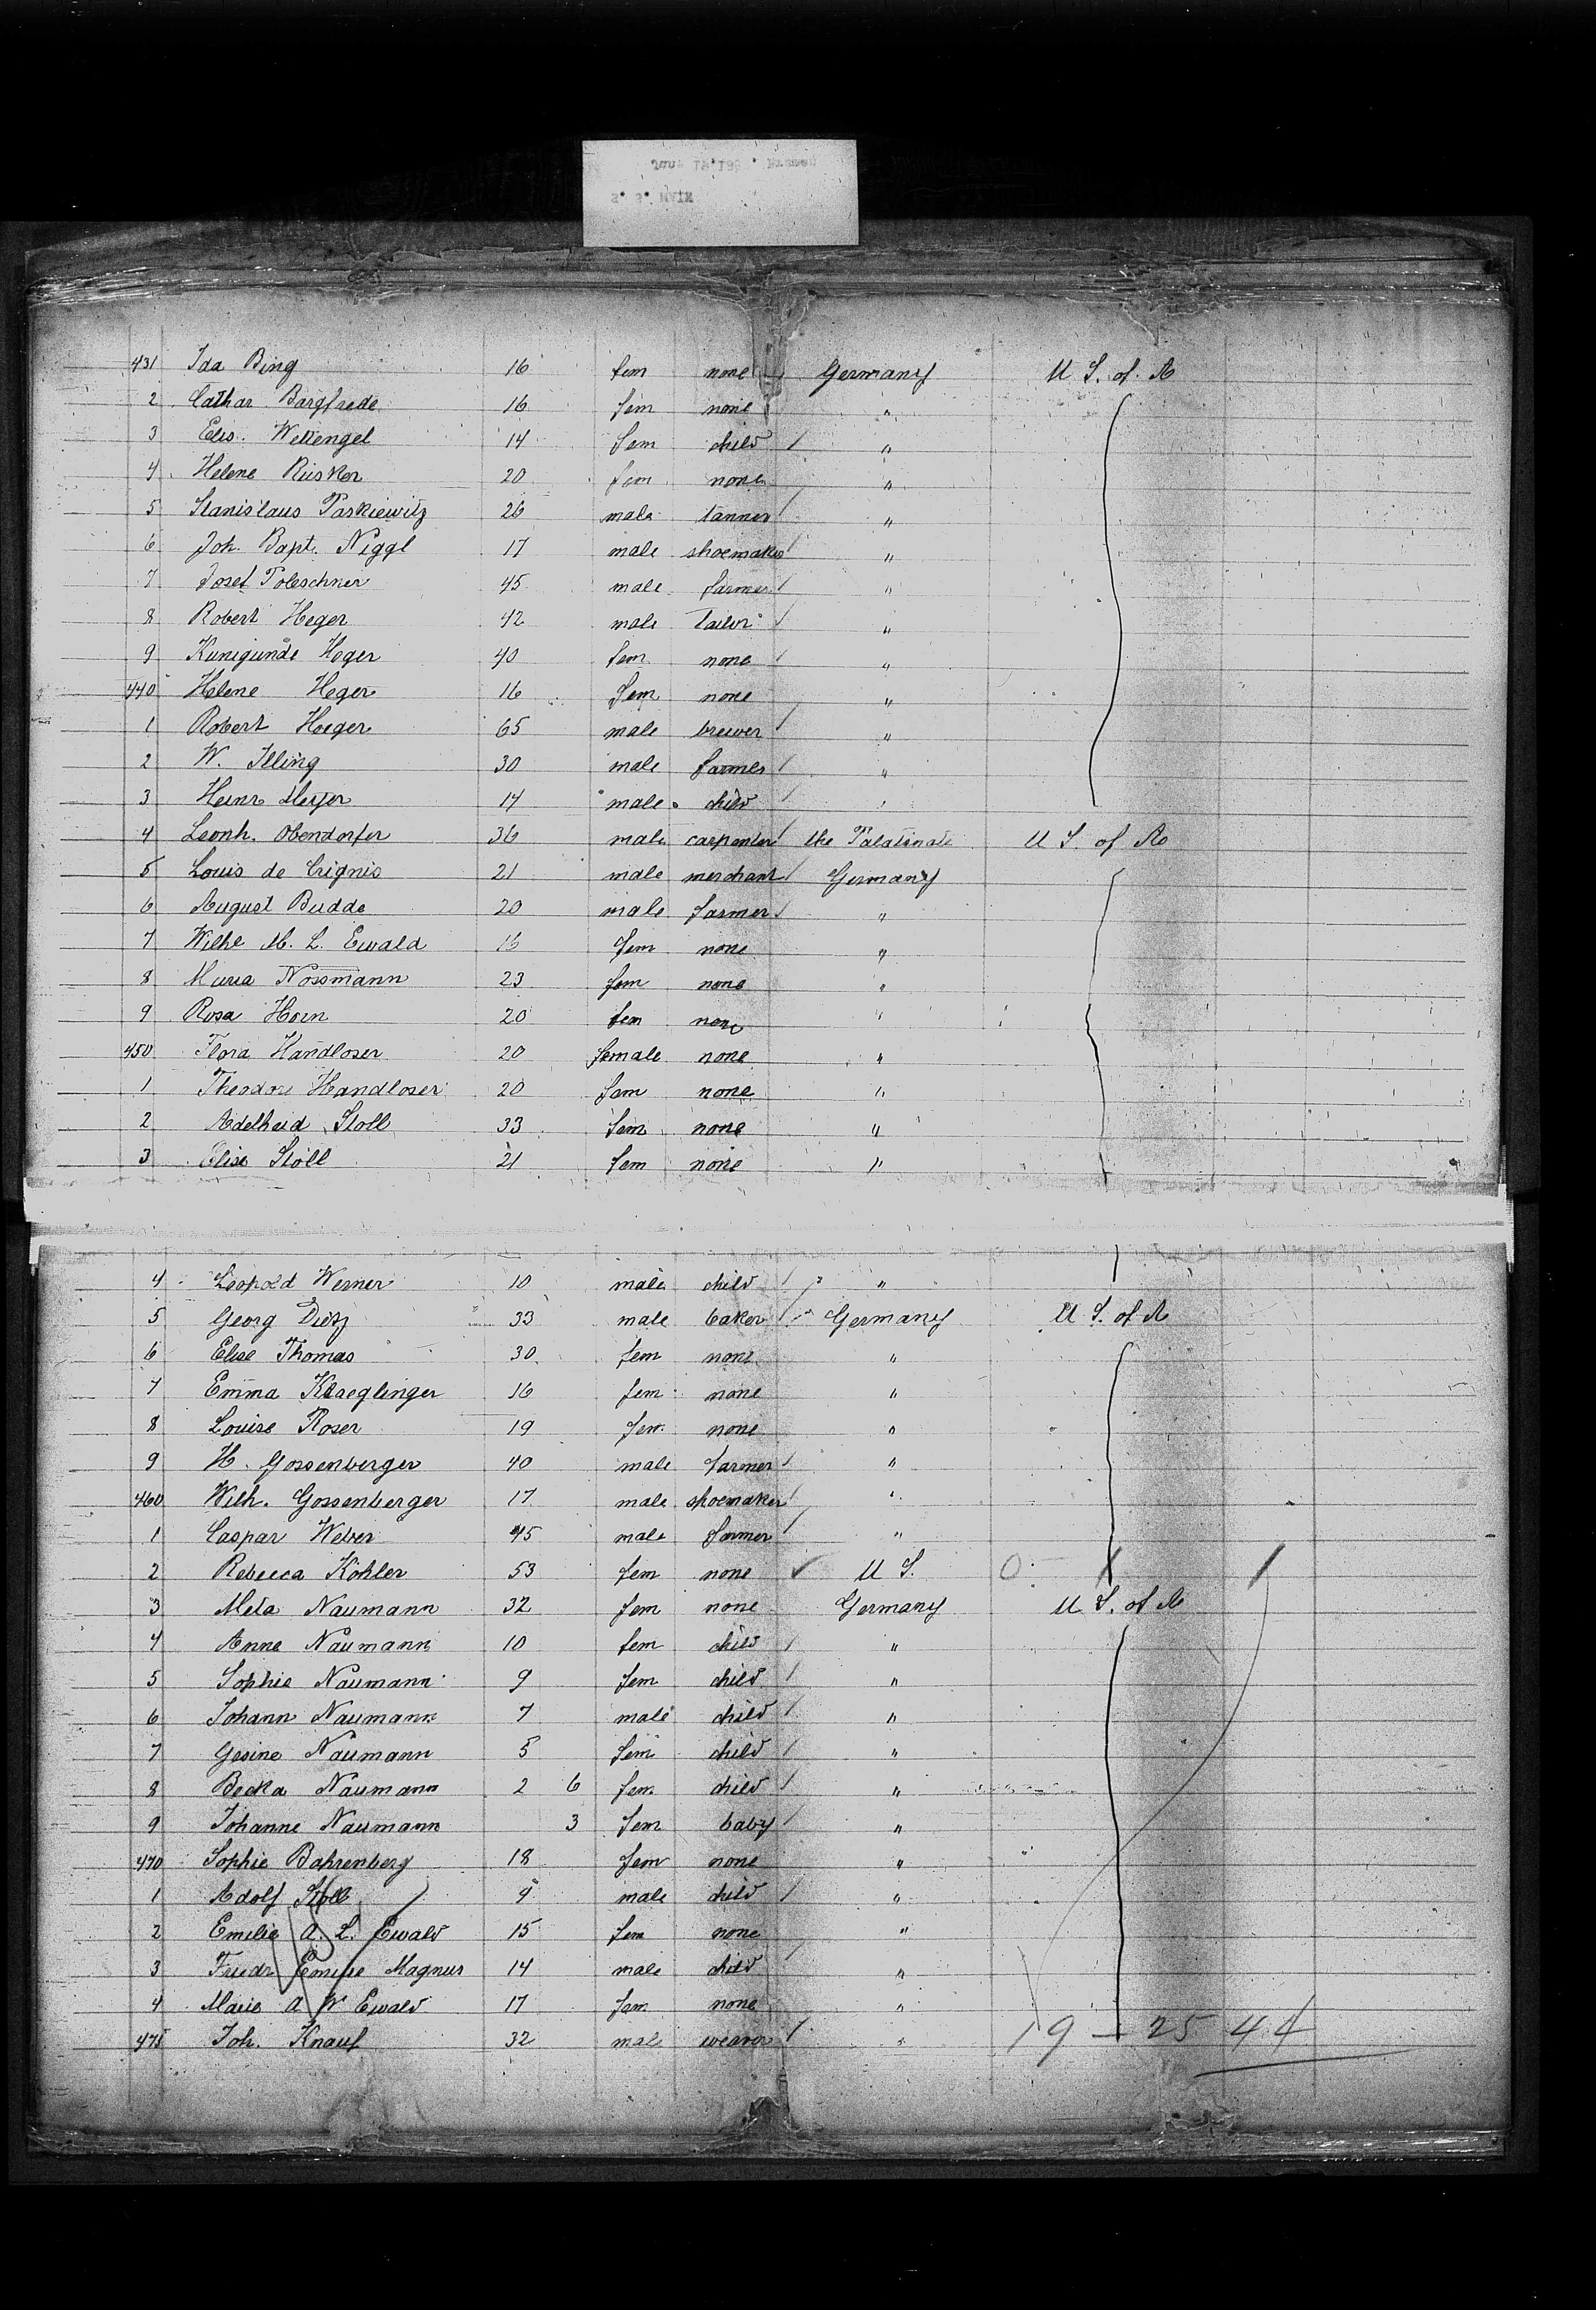 S. S. MAIN
431 Ida Bing 16 fem none Germany U S. of A
2 Cathar. Bargfrede 16 fem none "
3 Elis. Wettengel 14 fem child / "
4 Helene Rüsker 20 fem none "
5 Stanislaus Paskiewitz 26 male tanner / "
6 Joh. Bapt. Niggl 17 male shoemaker / "
7 Josef Poleschner 45 male farmer / "
8 Robert Heger 42 male tailor / "
9 Kunigunde Heger 40 fem none / "
440 Helene Heger 16 fem none "
1 Robert Hoeger 65 male brewer / "
2 W. Illing 30 male farmer / "
3 Heinr Meyer 14 male child / "
4 Leonh. Obendorfer 36 male carpenter / the Palatinate U S. of A
5 Louis de Crignis 21 male merchant / Germany
6 August Budde 20 male farmer / "
7 Wilhe M. L. Ewald fem none "
8 Maria Nossmann 23 fem none "
9 Rosa Horn 20 fem none "
450 Flora Handloser 20 female none "
1 Theodore Handloser 20 fem none "
2 Adelheid Stoll 33 fem none "
3 Elise Stoll 21 fem none "
4 Leopold Werner 10 male child / "
5 Georg Dietz 33 male baker / Germany U S. of A
6 Elise Thomas 30 fem none "
7 Emma Klaeglinger 16 fem none "
8 Louise Roser 19 fem none "
9 H. Gossenberger 40 male farmer / "
460 Wilh. Gossenberger 17 male shoemaker / "
1 Caspar Weber 45 male farmer / "
2 Rebecca Köhler 53 fem none ✓ U S. 0 1 1
3 Meta Naumann 32 fem none Germany U S. of A
4 Anna Naumann 10 fem child / "
5 Sophie Naumann 9 fem child / "
6 Johann Naumann 7 male child / "
7 Gesine Naumann 5 fem child / "
8 Becka Naumann 2 6 fem child / "
9 Johanne Naumann 3 fem baby / "
470 Sophie Bahrenberg 18 fem none "
1 Adolf Stoll 9 male child / "
2 Emilie A. L. Ewald 15 fem none "
3 Friedr Magnus 14 male child / "
4 Marie A W Ewald 17 fem none "
475 Joh. Knauf 32 male weaver / " 19 - 25 44